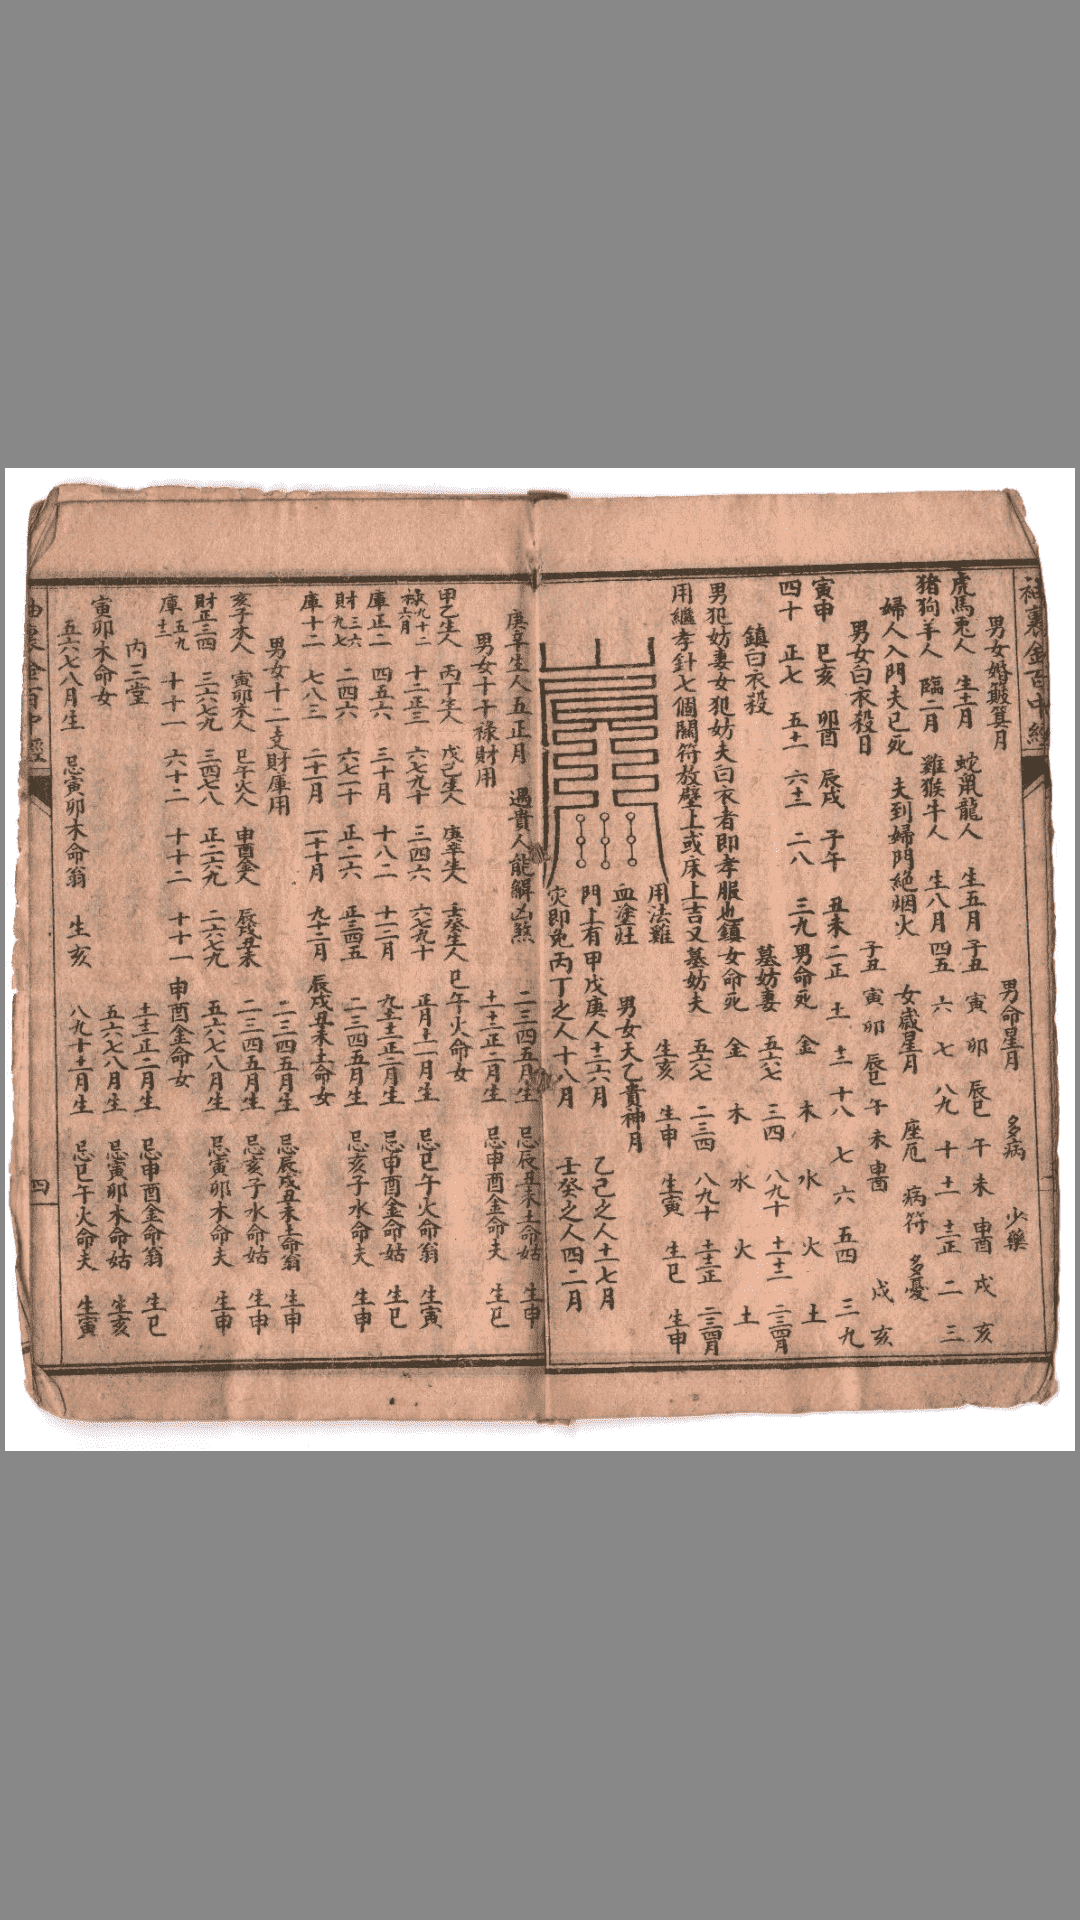 袖裏金百中經
男女婚敗箕月
虎馬兎人 生十一月 蛇鼠龍人 生五月
猪狗羊人 臨二月 雞猴牛人 生八月
婦人入門夫已死 夫到婦門絶烟火
男女白衣殺日
寅申 巳亥 卯酉 辰戌 子午 丑未
四十 正七 五十一 六十二 二八 三九
鎮白衣殺
男犯妨妻女犯妨夫白衣者即孝服也鎮
用繼孝針七個關符放壁上或床上吉又
用法雞
血塗灶
門上有
灾即免
男命星月 多病 少藥
子丑 寅 卯 辰巳 午 未 申酉 戌 亥
四五 六 七 八九 十 十一 十二正 二 三
女歲星月 座厄 病符 多憂
子丑 寅 卯 辰巳 午 未 申酉 戌 亥
二正 十二 十一 十八 七 六 五四 三 九
男命死 金 木 水 火 土
墓妨妻 五六七 三四 八九十 十一十二 二三四月
女命死 金 木 水 火 土
墓妨夫 五六七 二三四 八九十 十一十二正 二三四月
生亥 生申 生寅 生巳 生申
男女天乙貴神月
甲戊庚人十二六月 乙己之人十一七月
丙丁之人十八月 壬癸之人四二月
庚辛生人五正月 遇貴人能解凶煞
男女十干禄財用
甲乙生人 丙丁生人 戊己生人 庚辛生人 壬癸生人
禄九十二六月 十二正三 六七九十 三四六 六七九十
庫正二 四五六 三十月 十八二 十一二月
財三六九七 二四六 六七二十 正二六 正三四五
庫十二 七八三 二十二月 一十十月 九十二月
男女十二支財庫用
亥子水人 寅卯木人 巳午火人 申酉金人 辰戌丑未
財正三四五九 三六七九 三四七八 正二六九 二六七九
庫十二 十十一 六十二 十十二 十十一
内三堂
寅卯木命女
五六七八月生 忌寅卯木命翁 生亥
二三四五月生 忌辰丑未土命姑 生申
十一十二正二月生 忌申酉金命夫 生巳
巳午火命女
正月十一月生 忌巳午火命翁 生寅
九十十二正二月生 忌申酉金命姑 生巳
二三四五月生 忌亥子水命夫 生申
辰戌丑未土命女
二三四五月生 忌辰戌丑未土命翁 生申
二三四五月生 忌亥子水命姑 生申
五六七八月生 忌寅卯木命夫 生申
申酉金命女
十一十二正二月生 忌申酉金命翁 生巳
五六七八月生 忌寅卯木命姑 生亥
八九十十一月生 忌巳午火命夫 生寅
四